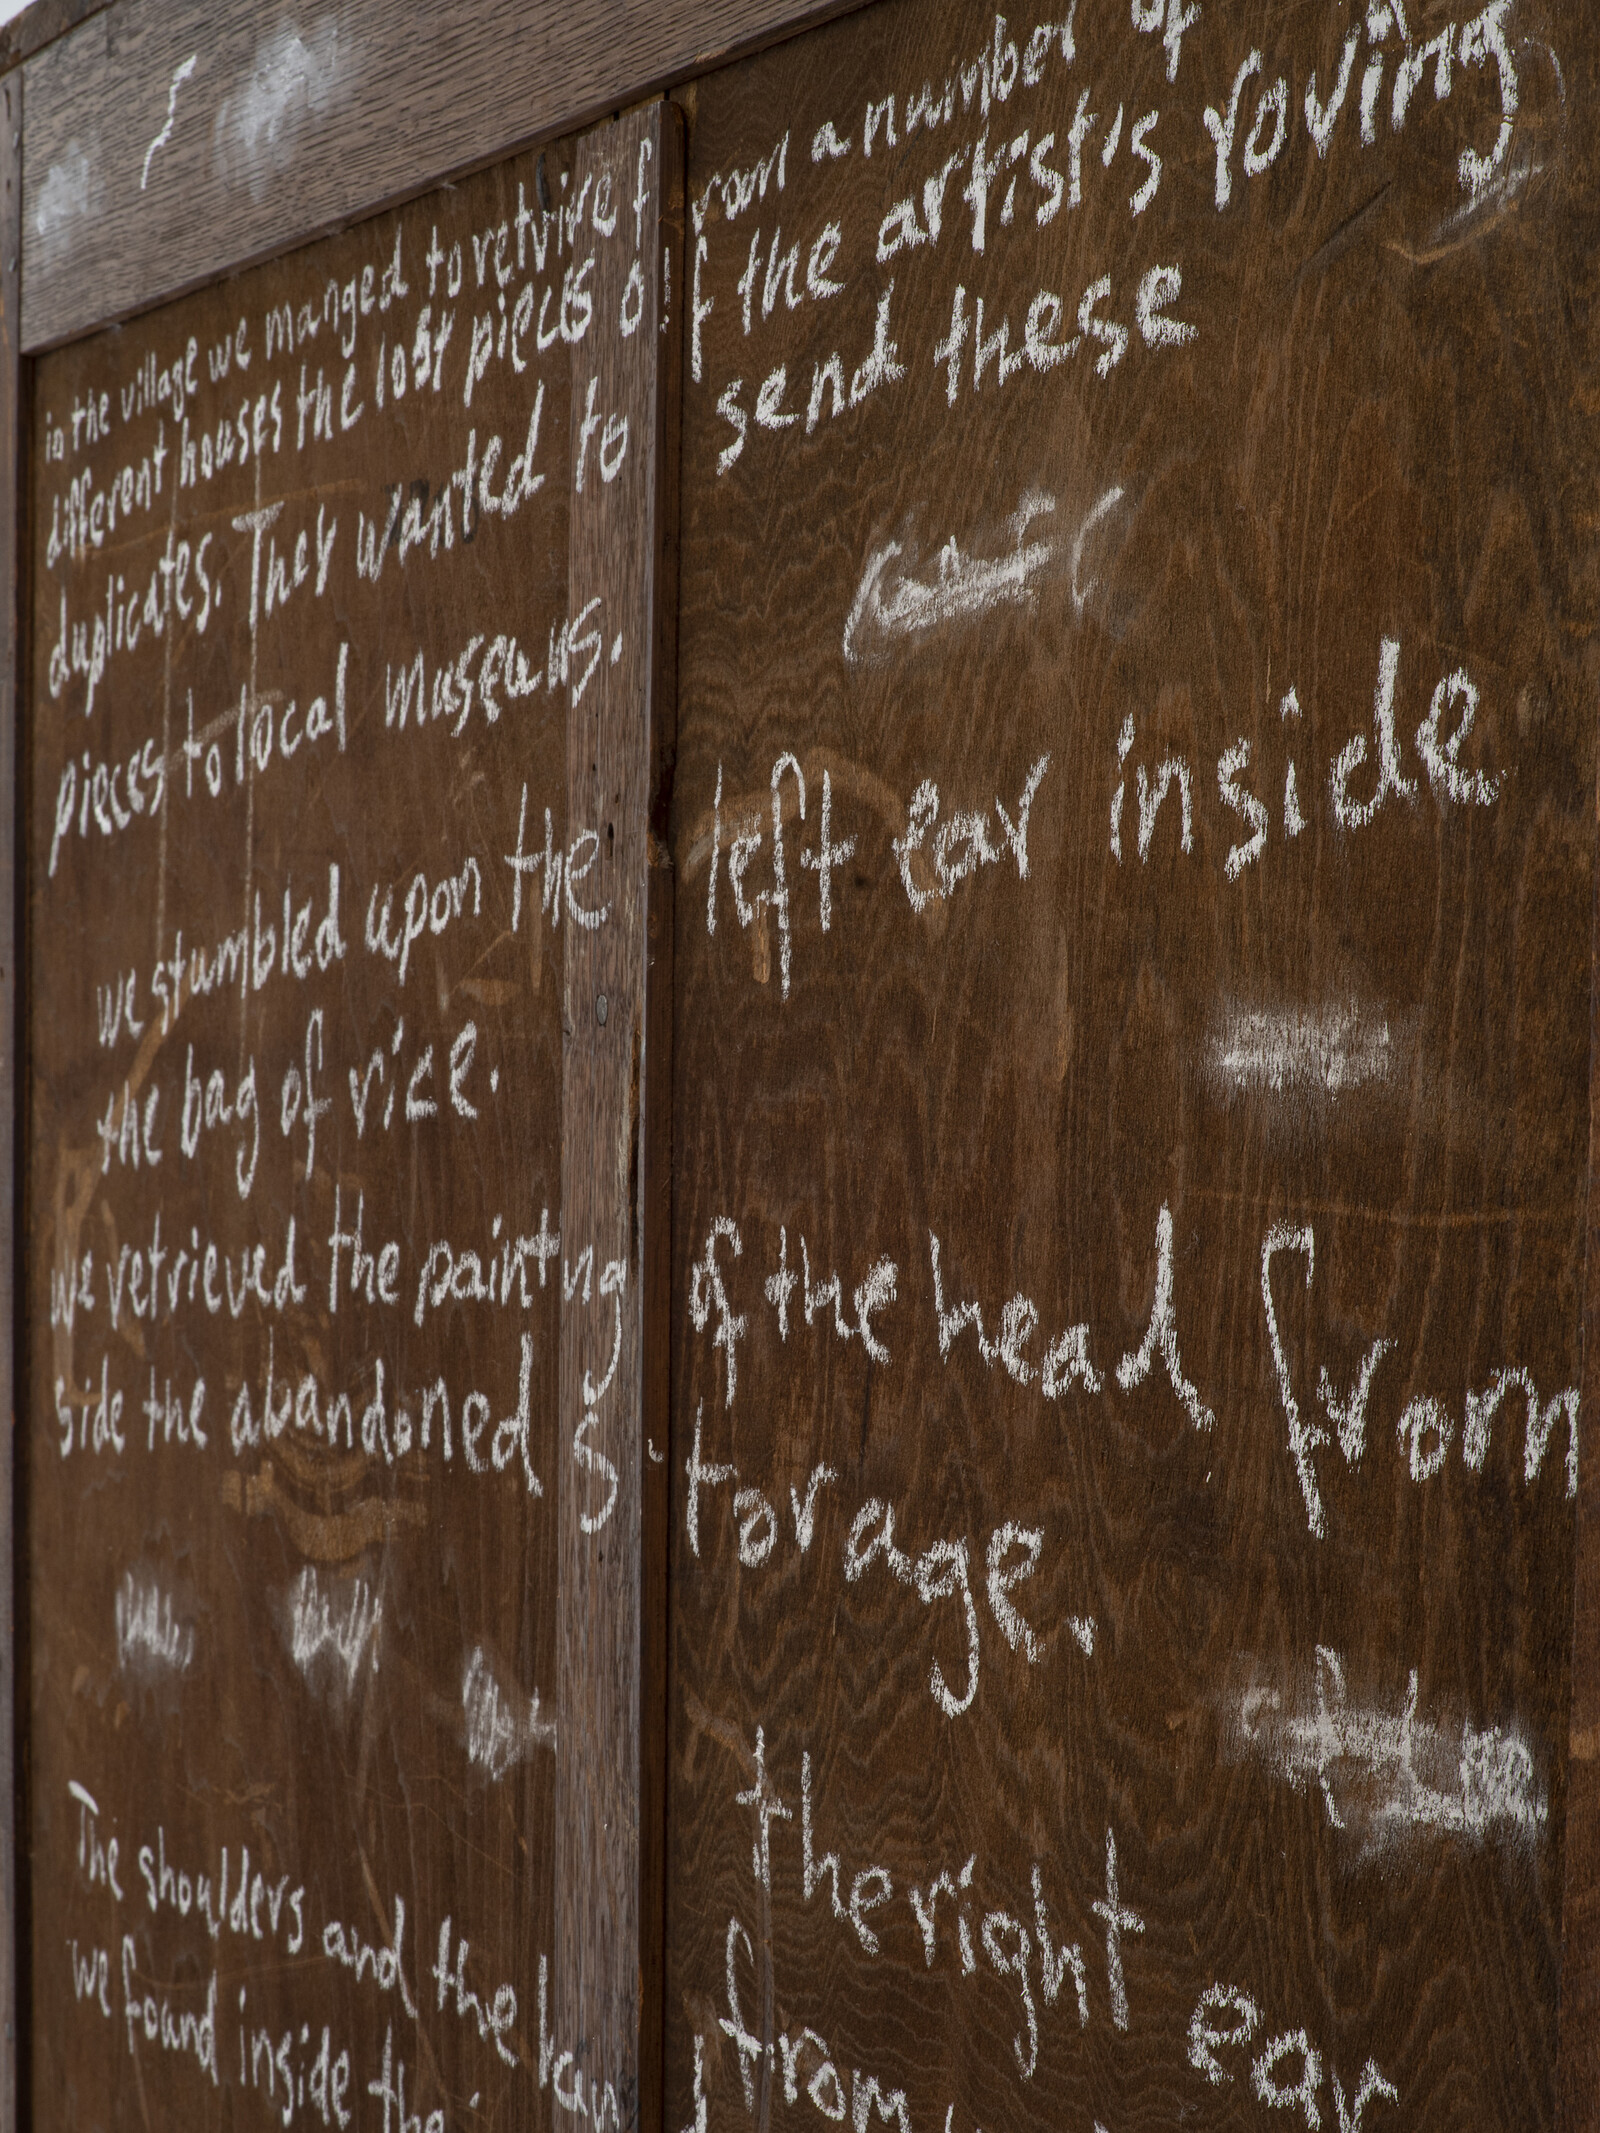 in the village we manged to retrive from a number of
different houses the lost pieces of the artist's roving
duplicates. They wanted to send these
pieces to local museums.
we stumbled upon the left ear inside
the bag of rice.
we retrieved the painting of the head from
side the abandoned storage.
The shoulders and the right ear
we found inside the from